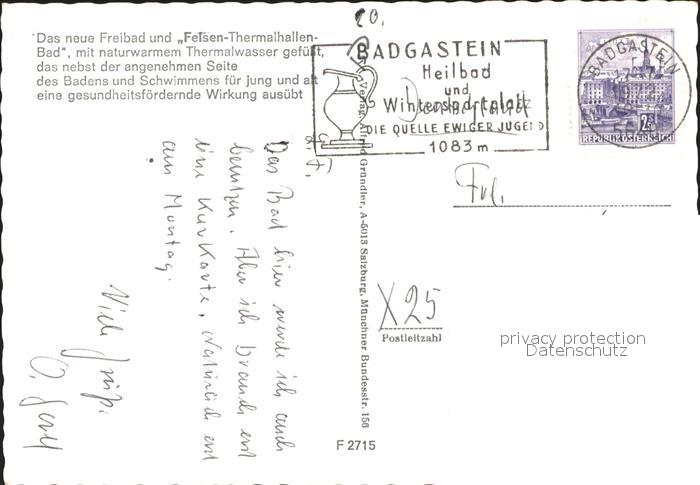 Das neue Freibad und „Felsen-Thermalhallen-
Bad", mit naturwarmem Thermalwasser gefüllt,
das nebst der angenehmen Seite
des Badens und Schwimmens für jung und alt
eine gesundheitsfördernde Wirkung ausübt
BADGASTEIN
Heilbad
und
Wintersportplatz
DIE QUELLE EWIGER JUGEND
1083 m
BADGASTEIN
2S
REPUBLIK ÖSTERREICH
Das Bad hier werde ich auch
benützen. Aber ich brauch erst
eine Kurkarte, natürlich erst
am Montag.
Viele Grüße
Verlag Alfred Gründler, A-5013 Salzburg, Münchner Bundesstr. 156
Frl.
X 25
Postleitzahl
privacy protection
Datenschutz
F 2715